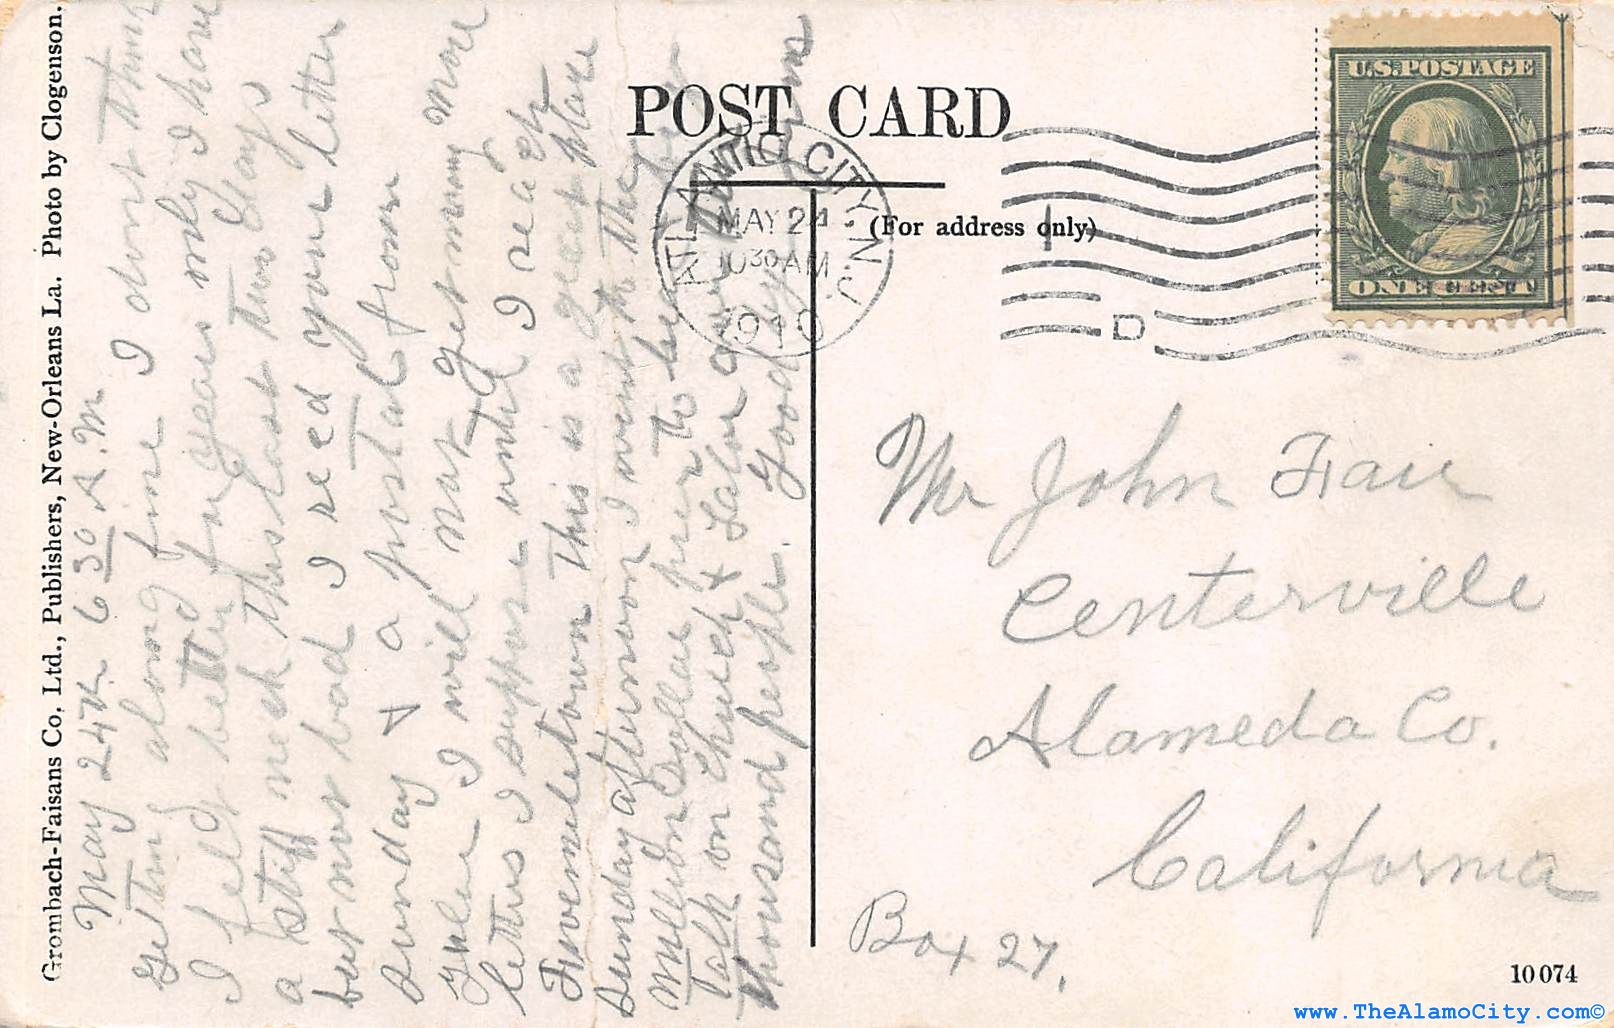 Grombach-Faisans Co. Ltd., Publishers, New-Orleans La. Photo by Clogenson.
May 24th 6 30 A.M.
Getting along fine I dont think
I felt better for years only I have
a stiff neck this last two days
but not bad I recd your letter
Sunday & a postal from
I will not get many more
letters I suppose until I reach
This is a great place
Sunday afternoon I went to the
Million Dollar pier to hear
Talk on Church & Labor
thousand people. Good
POST CARD
(For address only)
ATLANTIC CITY, N. J.
MAY 24
10 30 AM
D
U.S. POSTAGE
ONE CENT
Mr John Fair
Centerville
Alameda Co.
California
Box 27.
10074
www.TheAlamoCity.com©